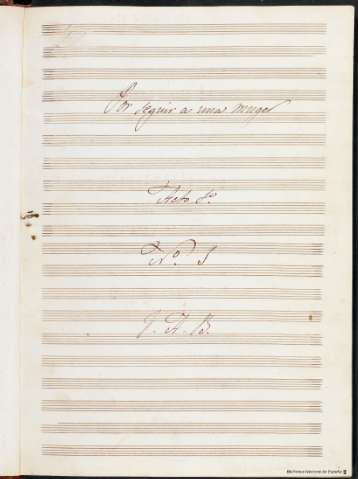 Por seguir a una muger
Acto 1º
Nº. 1
F. A. B.
Biblioteca Nacional de España